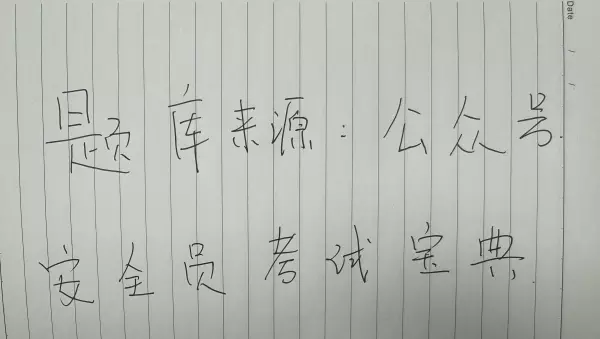 Date / /
题库来源：公众号.
安全员考试宝典.